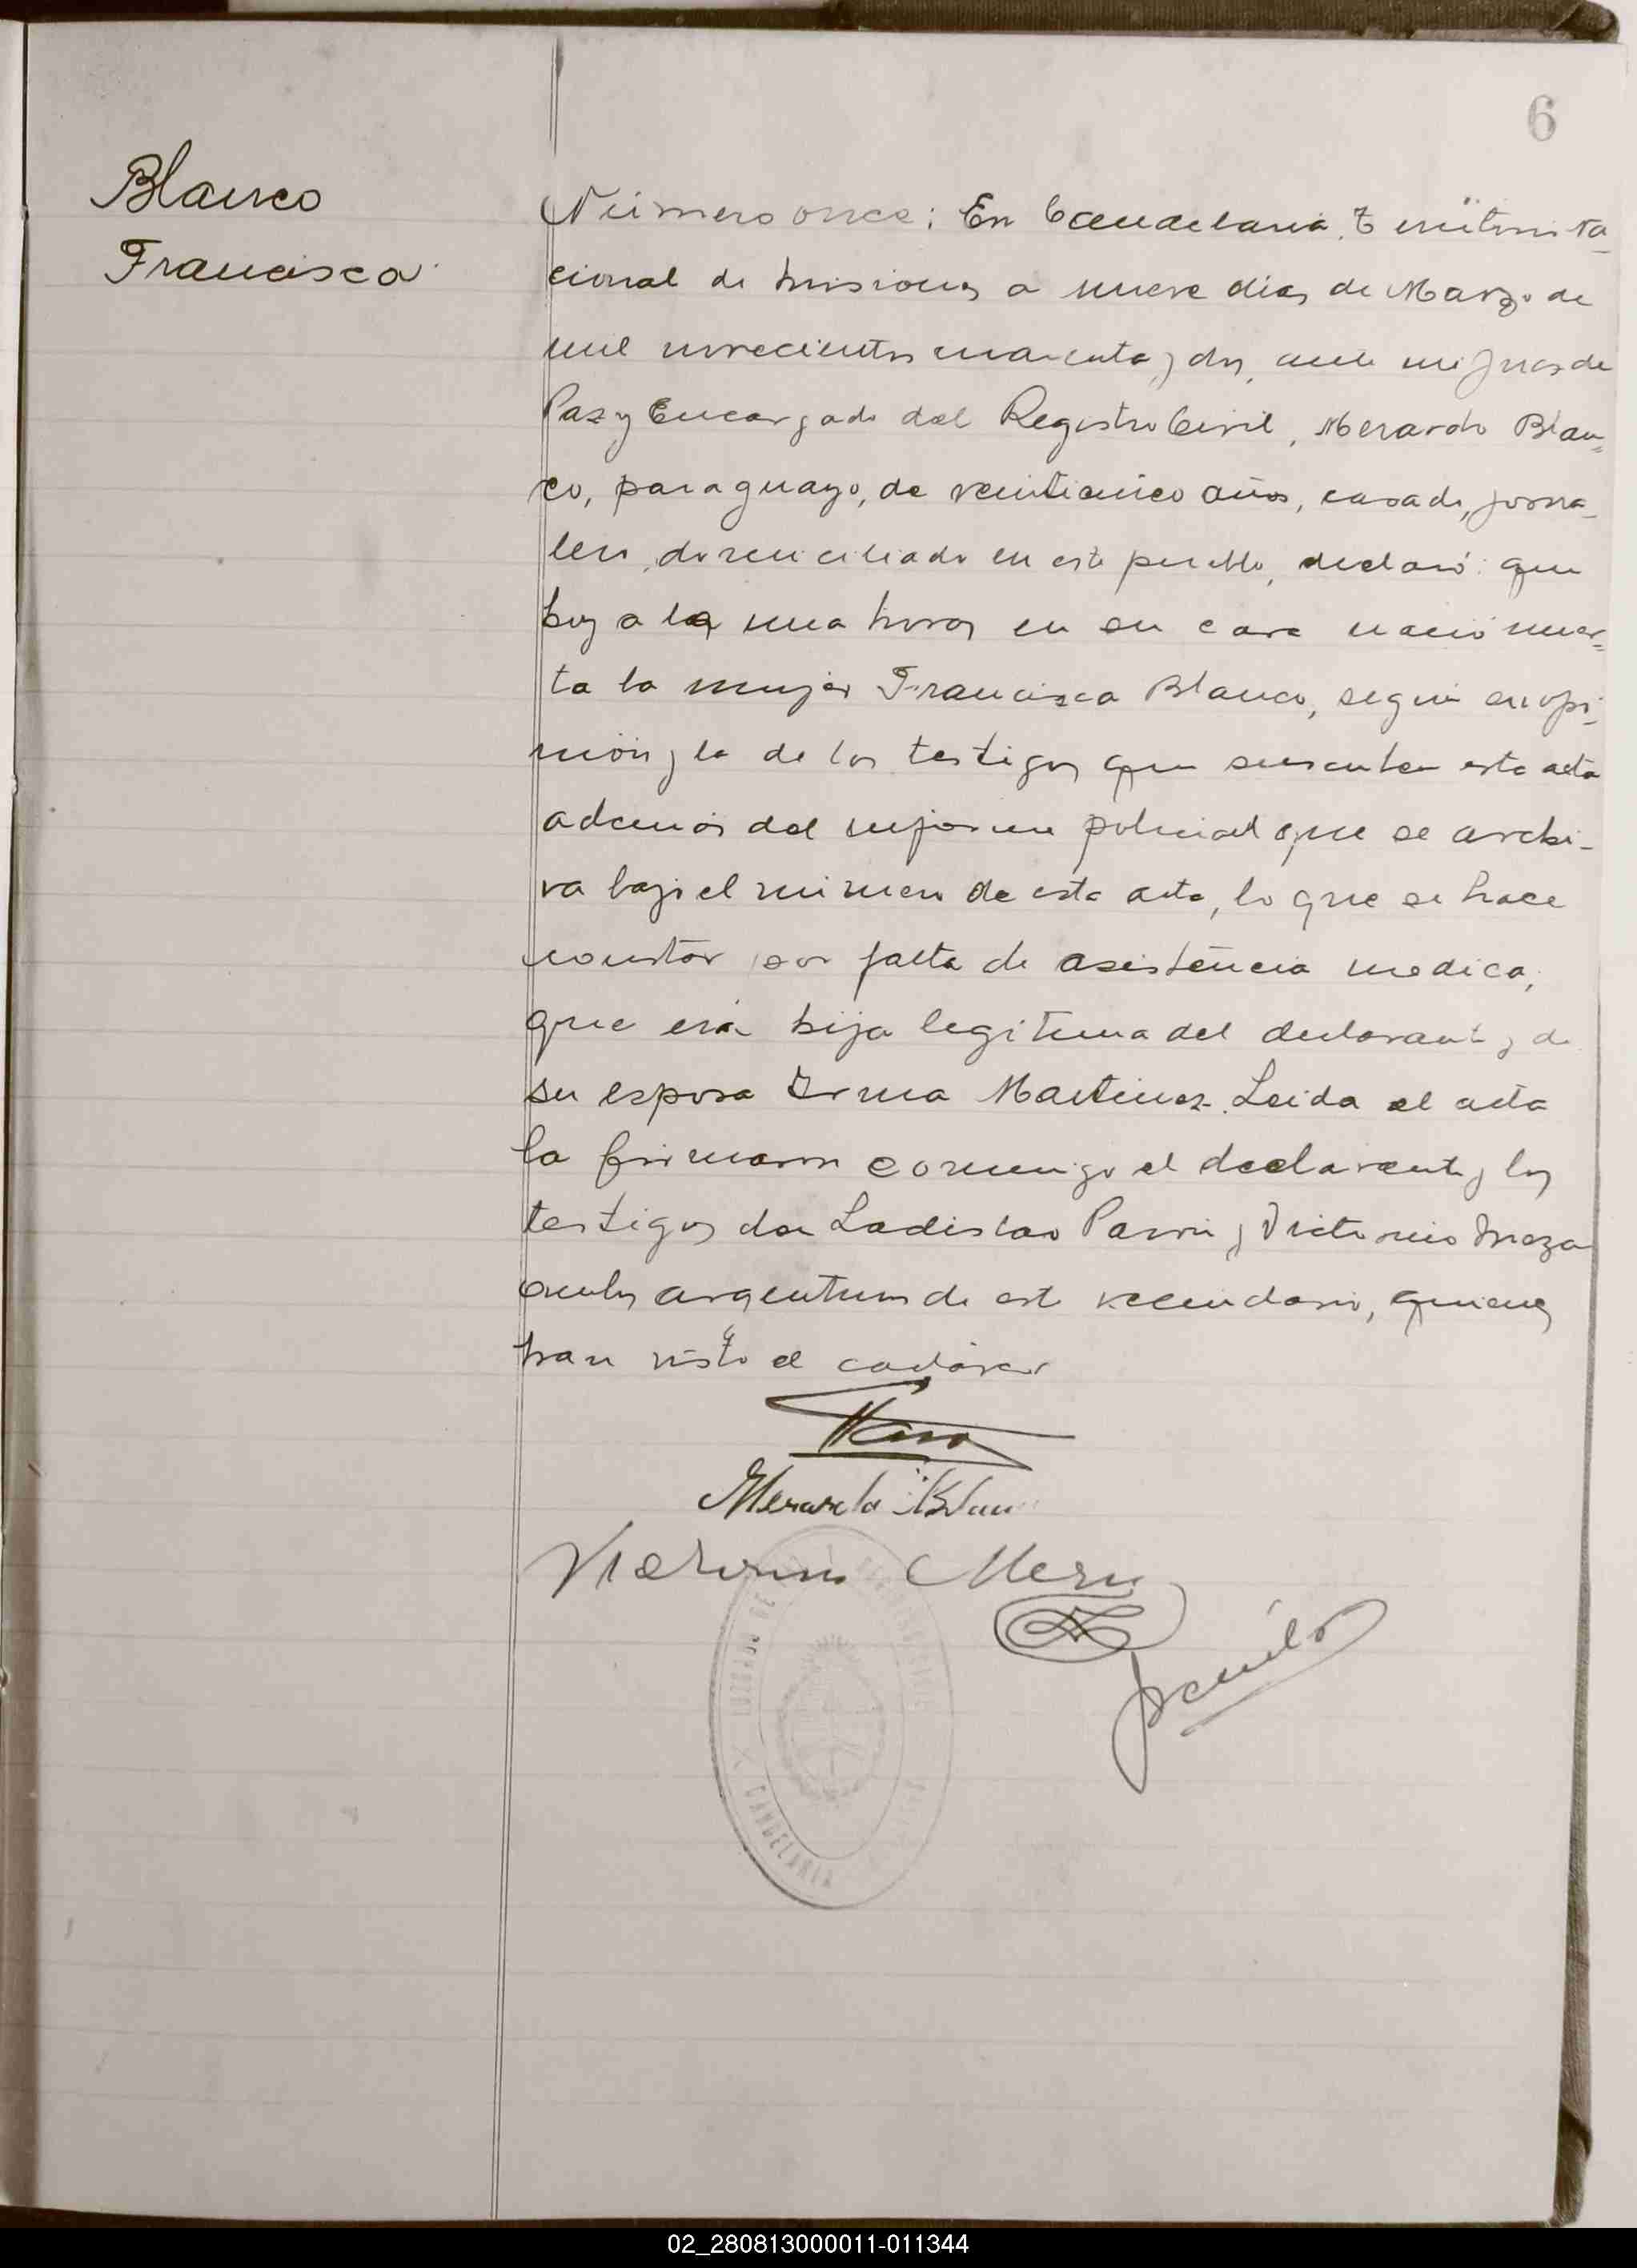 6
Blanco
Francisca
Número once: En Candelaria, Territorio Na-
cional de Misiones a nueve dias de Marzo de
mil novecientos cuarenta y dos, ante mi Juez de
Paz y Encargado del Registro Civil, Merardo Blan=
co, paraguayo, de veinticinco años, casado, jorna-
lero, domiciliado en este pueblo, declaró: que
hoy a la una horas en su casa nació muer=
ta la mujer Francisca Blanco, según su opi-
nión y la de los testigos que suscriben esta acta
además del informe policial que se archi-
va bajo el número de esta acta, lo que se hace
constar por falta de asistencia medica,
que era hija legitima del declarante y de
su esposa Irma Martinez. Leida el acta
la firmaron conmigo el declarante y los
testigos don Ladislao y Victorio Meza
ambos argentinos de este vecindario, quienes
han visto el cadáver
Merardo Blanco
Meza
JUZGADO DE
CANDELARIA
02_280813000011-011344